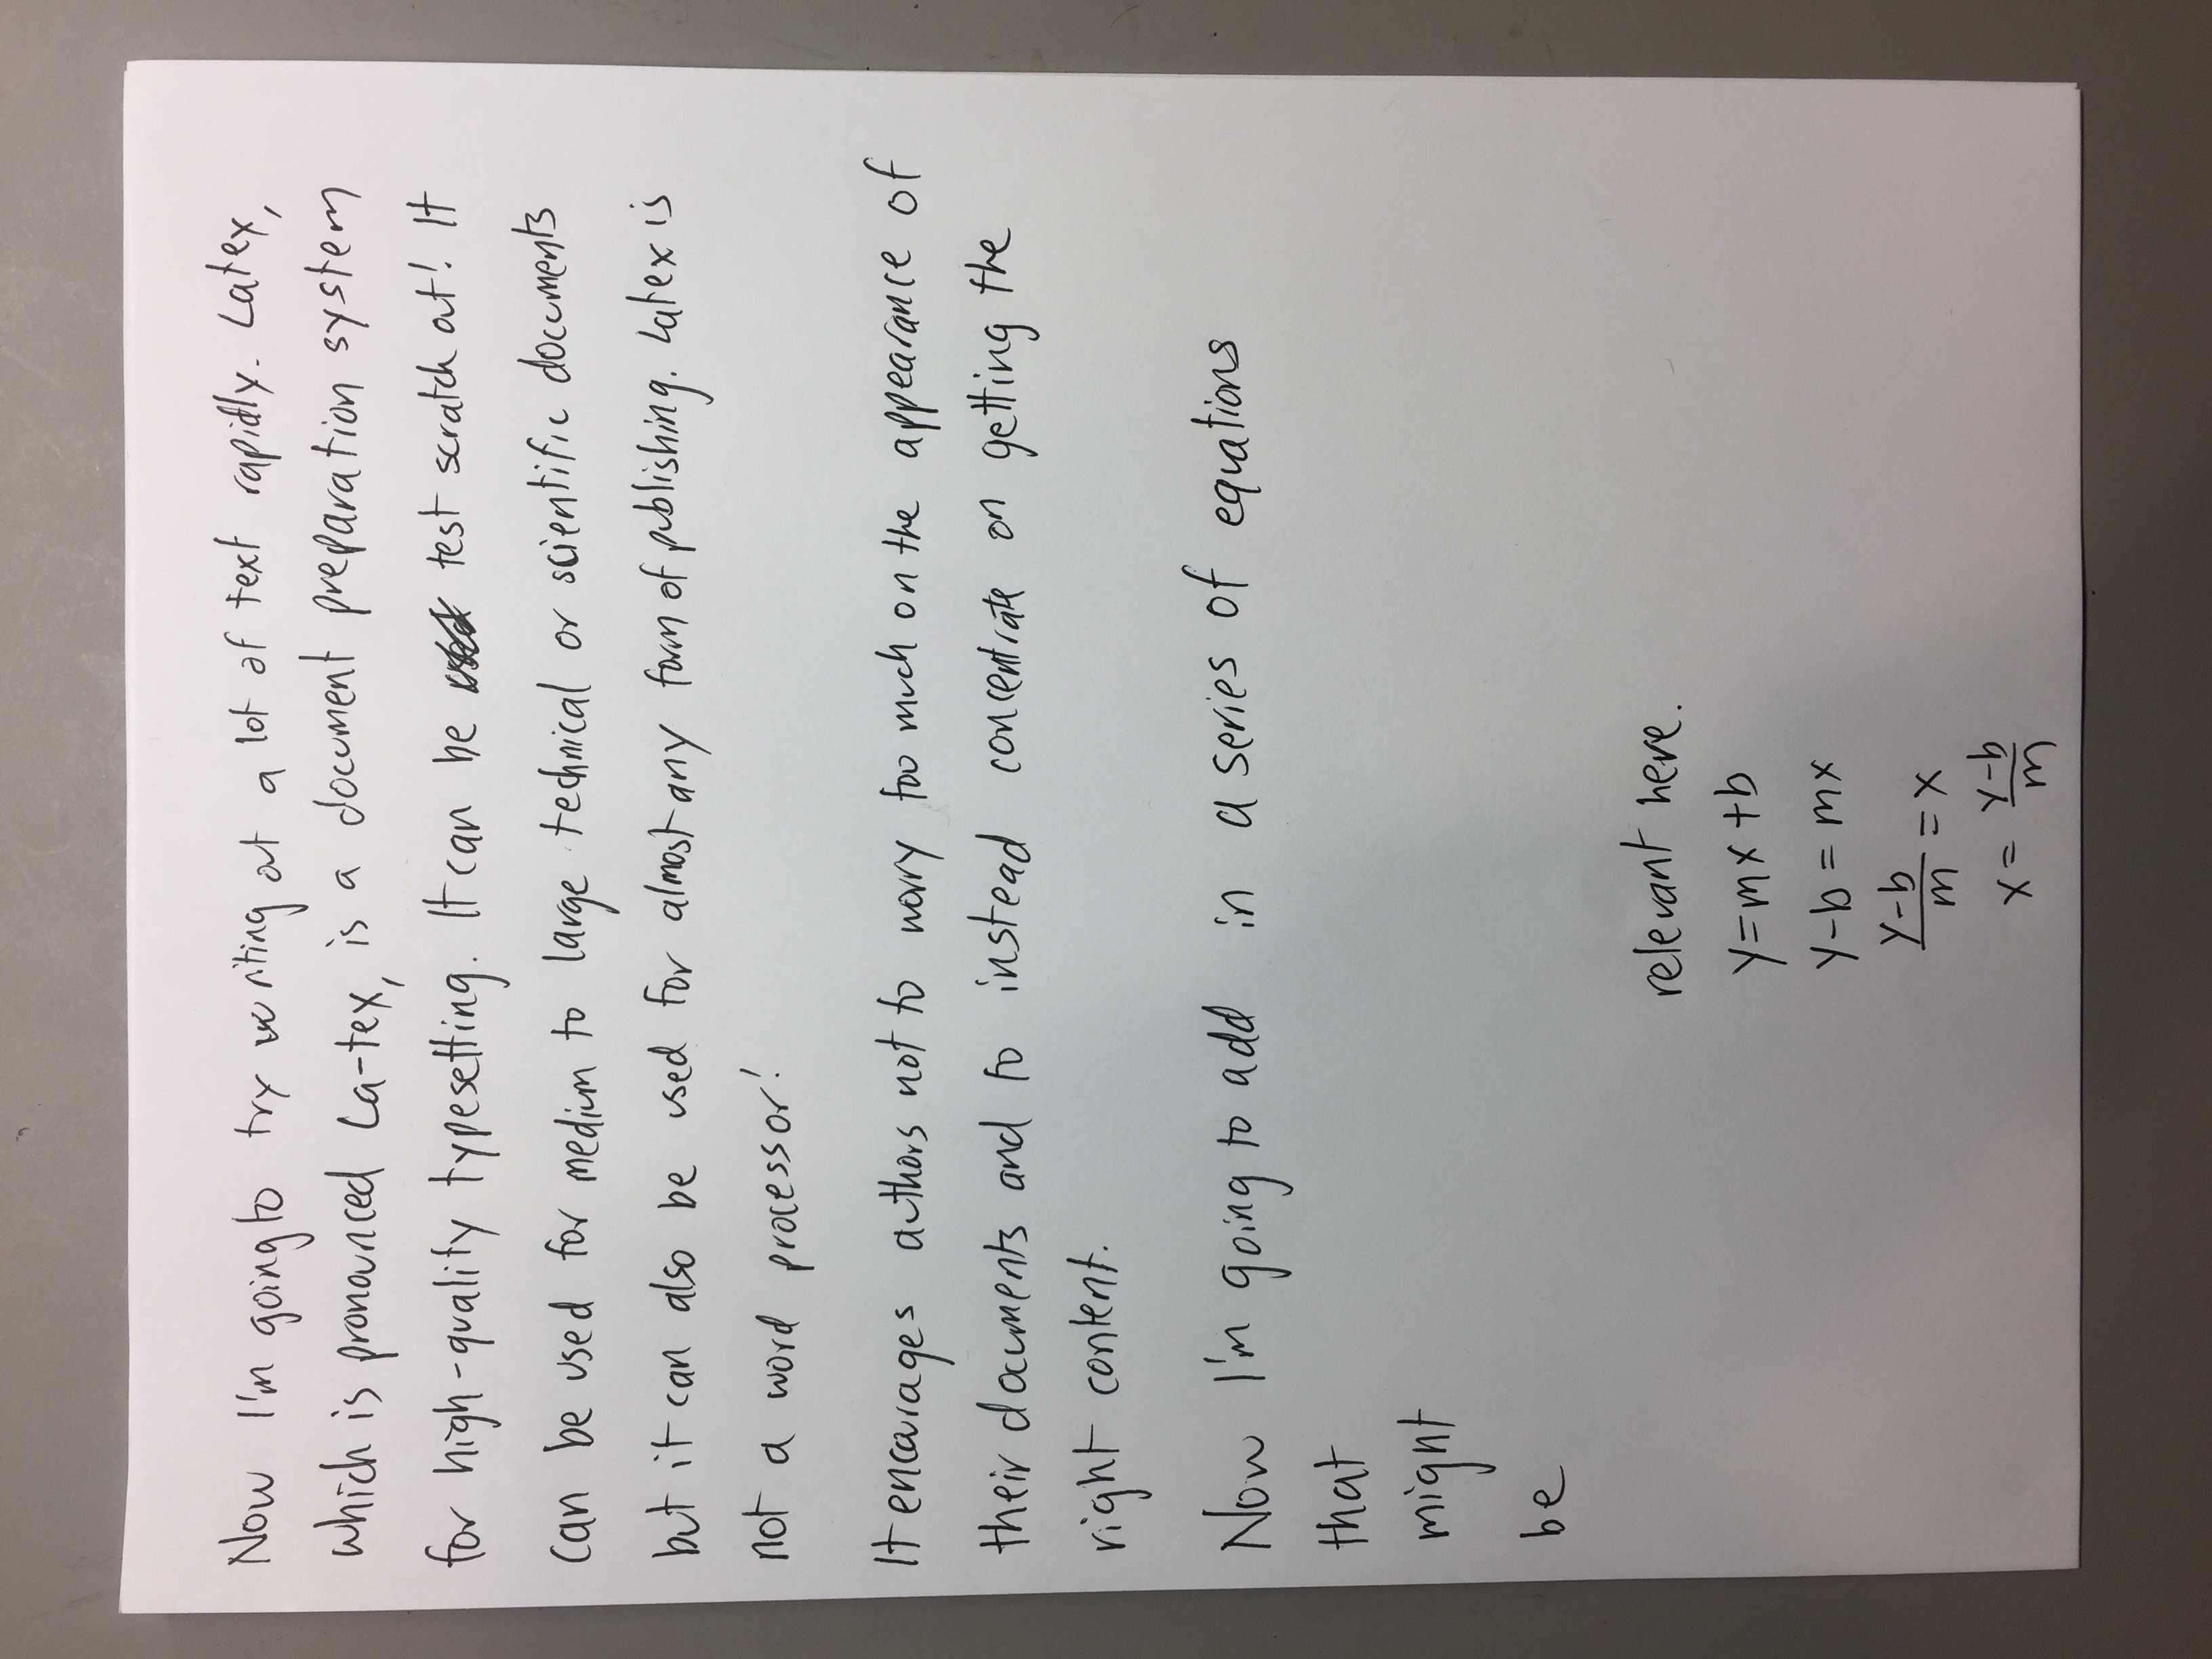 Now I'm going to try writing out a lot of text rapidly. Latex,
which is pronounced La-tex, is a document preparation system
for high-quality typesetting. It can be test scratch out! It
can be used for medium to large technical or scientific documents
but it can also be used for almost any form of publishing. Latex is
not a word processor!
It encourages authors not to worry too much on the appearance of
their documents and to instead concentrate on getting the
right content.
Now I'm going to add in a series of equations
that
might
be
relevant here.
y=mx+b
y-b = mx
y-b
m = x
x = y-b
m